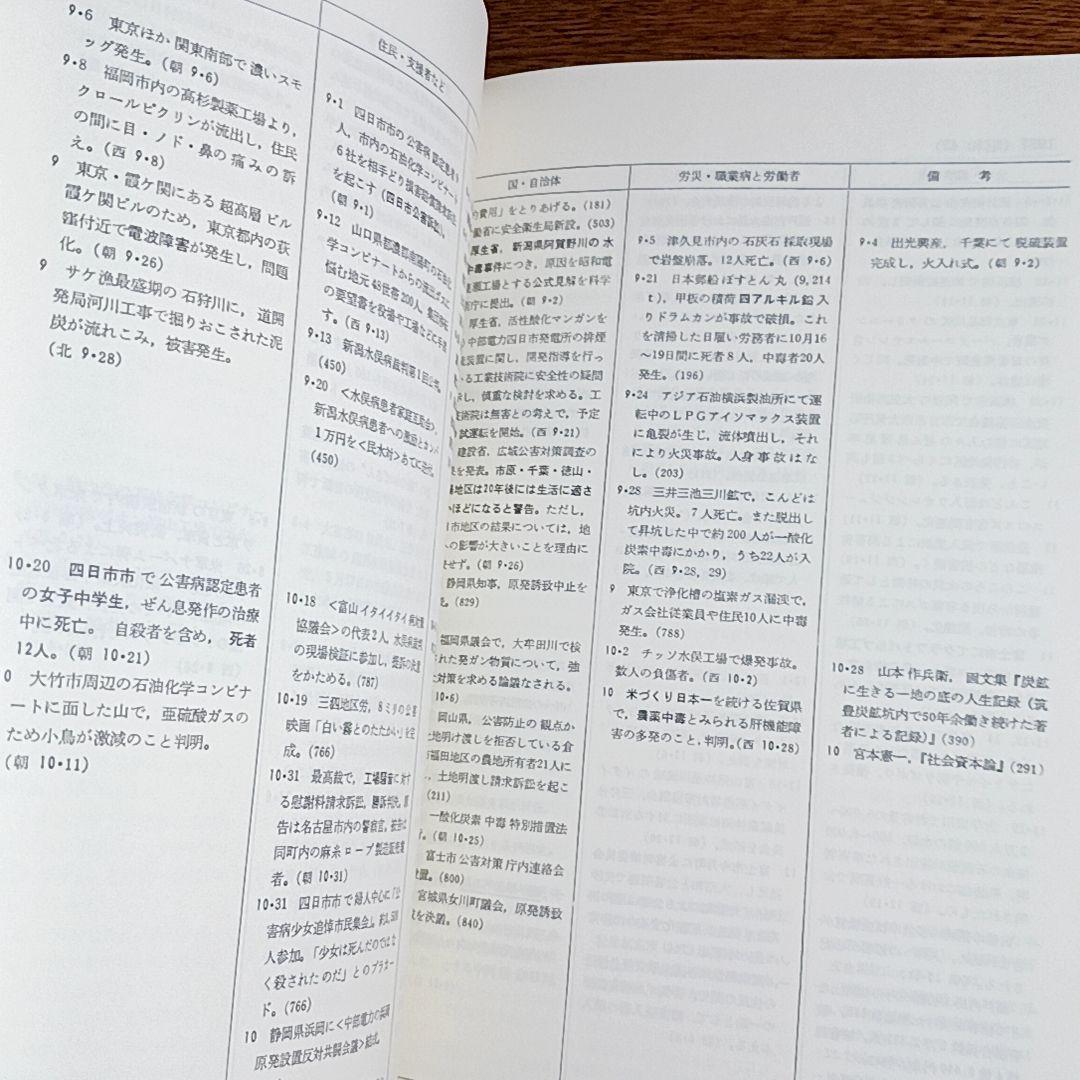 9・6　東京ほか関東南部で濃いスモ
ッグ発生。(朝 9・6)
9・8　福岡市内の高杉製薬工場より，
クロールピクリンが流出し，住民
の間に目・ノド・鼻の痛みの訴
え。(西 9・8)
9　東京・霞ケ関にある超高層ビル
霞ケ関ビルのため，東京都内の荻
窪付近で電波障害が発生し，問題
化。(朝 9・26)
9　サケ漁最盛期の石狩川に，道開
発局河川工事で掘りおこされた泥
炭が流れこみ，被害発生。
(北 9・28)
10・20　四日市市で公害病認定患者
の女子中学生，ぜん息発作の治療
中に死亡。自殺者を含め，死者
12人。(朝 10・21)
0　大竹市周辺の石油化学コンビナ
ートに面した山で，亜硫酸ガスの
ため小鳥が激減のこと判明。
(朝 10・11)
住民・支援者など
9・1　四日市市の公害病認定患者9
人，市内の石油化学コンビナート
6社を相手どり損害賠償請求訴訟
を起こす(四日市公害訴訟)。
(朝 9・1)
9・12　山口県都濃郡南陽町の石油化
学コンビナートからの
悩む地元48世帯200人，
の要望書を役場や工場などに手渡
す。(西 9・13)
9・13　新潟水俣病裁判第1回公判。
(450)
9・20　＜水俣病患者家庭互助会＞，
新潟水俣病患者への激励とカンパ
1万円を＜民水対＞あてに送付。
(450)
10・18　＜富山イタイイタイ病対策
協議会＞の代表2人，水俣病裁判
の現場検証に参加し，提訴の決意
をかためる。(787)
10・19　三泗地区労，8ミリの公害
映画「白い霧とのたたかい」を完
成。(766)
10・31　最高裁で，工場騒音に対す
る慰謝料請求訴訟，勝訴判決。原
告は名古屋市内の警察官，被告は
同町内の麻糸ロープ製造販売業
者。(朝 10・31)
10・31　四日市市で婦人中心に「公
害病少女追悼市民集会」。約1,500
人参加。「少女は死んだのではな
く殺されたのだ」とのプラカー
ド。(766)
10　静岡県浜岡に＜中部電力の浜岡
原発設置反対共闘会議＞結成
国・自治体
費用」をとりあげる。(181)
働省に安全衛生局新設。(503)
厚生省，新潟県阿賀野川の水
中毒事件につき，原因を昭和電
瀬工場とする公式見解を科学
術庁に提出。(朝 9・2)
厚生省，活性酸化マンガンを
中部電力四日市発電所の排煙
装置に関し，開発指導を行っ
いる工業技術院に安全性の疑問
し，慎重な検討を求める。工
技術院は無害との考えで，予定
試運転を開始。(西 9・21)
建設省，広域公害対策調査の
を発表。市原・千葉・徳山・
地区は20年後には生活に適さ
いほどになると警告。ただし，
市地区の結果については，地
の影響が大きいことを理由に
せず。(朝 9・26)
静岡県知事，原発誘致中止を
(829)
福岡県議会で，大牟田川で検
された発ガン物質について，強
対策を求める論議なされる。
10・6)
岡山県，公害防止の観点か
土地明け渡しを拒否している倉
福田地区の農地所有者21人に
，土地明渡し請求訴訟を起こ
(211)
一酸化炭素中毒特別措置法
(朝 10・25)
富士市公害対策庁内連絡会
置。(800)
宮城県女川町議会，原発誘致
を決議。(840)
労災・職業病と労働者
9・5　津久見市内の石灰石採取現場
で岩盤崩落。12人死亡。(西 9・6)
9・21　日本郵船ぼすとん丸(9,214
t)，甲板の積荷四アルキル鉛入
りドラムカンが事故で破損。これ
を清掃した日雇い労務者に10月16
～19日間に死者8人，中毒者20人
発生。(196)
9・24　アジア石油横浜製油所にて運
転中のLPGアイソマックス装置
に亀裂が生じ，流体噴出し，それ
により火災事故。人身事故はな
し。(203)
9・28　三井三池三川鉱で，こんどは
坑内火災。7人死亡。また脱出し
て昇坑した中で約200人が一酸化
炭素中毒にかかり，うち22人が入
院。(西 9・28, 29)
9　東京で浄化槽の塩素ガス漏洩で，
ガス会社従業員や住民10人に中毒
発生。(788)
10・2　チッソ水俣工場で爆発事故。
数人の負傷者。(西 10・2)
10　米づくり日本一を続ける佐賀県
で，農薬中毒とみられる肝機能障
害の多発のこと，判明。(西 10・28)
備　考
9・4　出光興産，千葉にて脱硫装置
完成し，火入れ式。(朝 9・2)
10・28　山本作兵衛，画文集『炭鉱
に生きる一地の底の人生記録(筑
豊炭鉱坑内で50年余働き続けた著
者による記録)』(390)
10　宮本憲一,『社会資本論』(291)